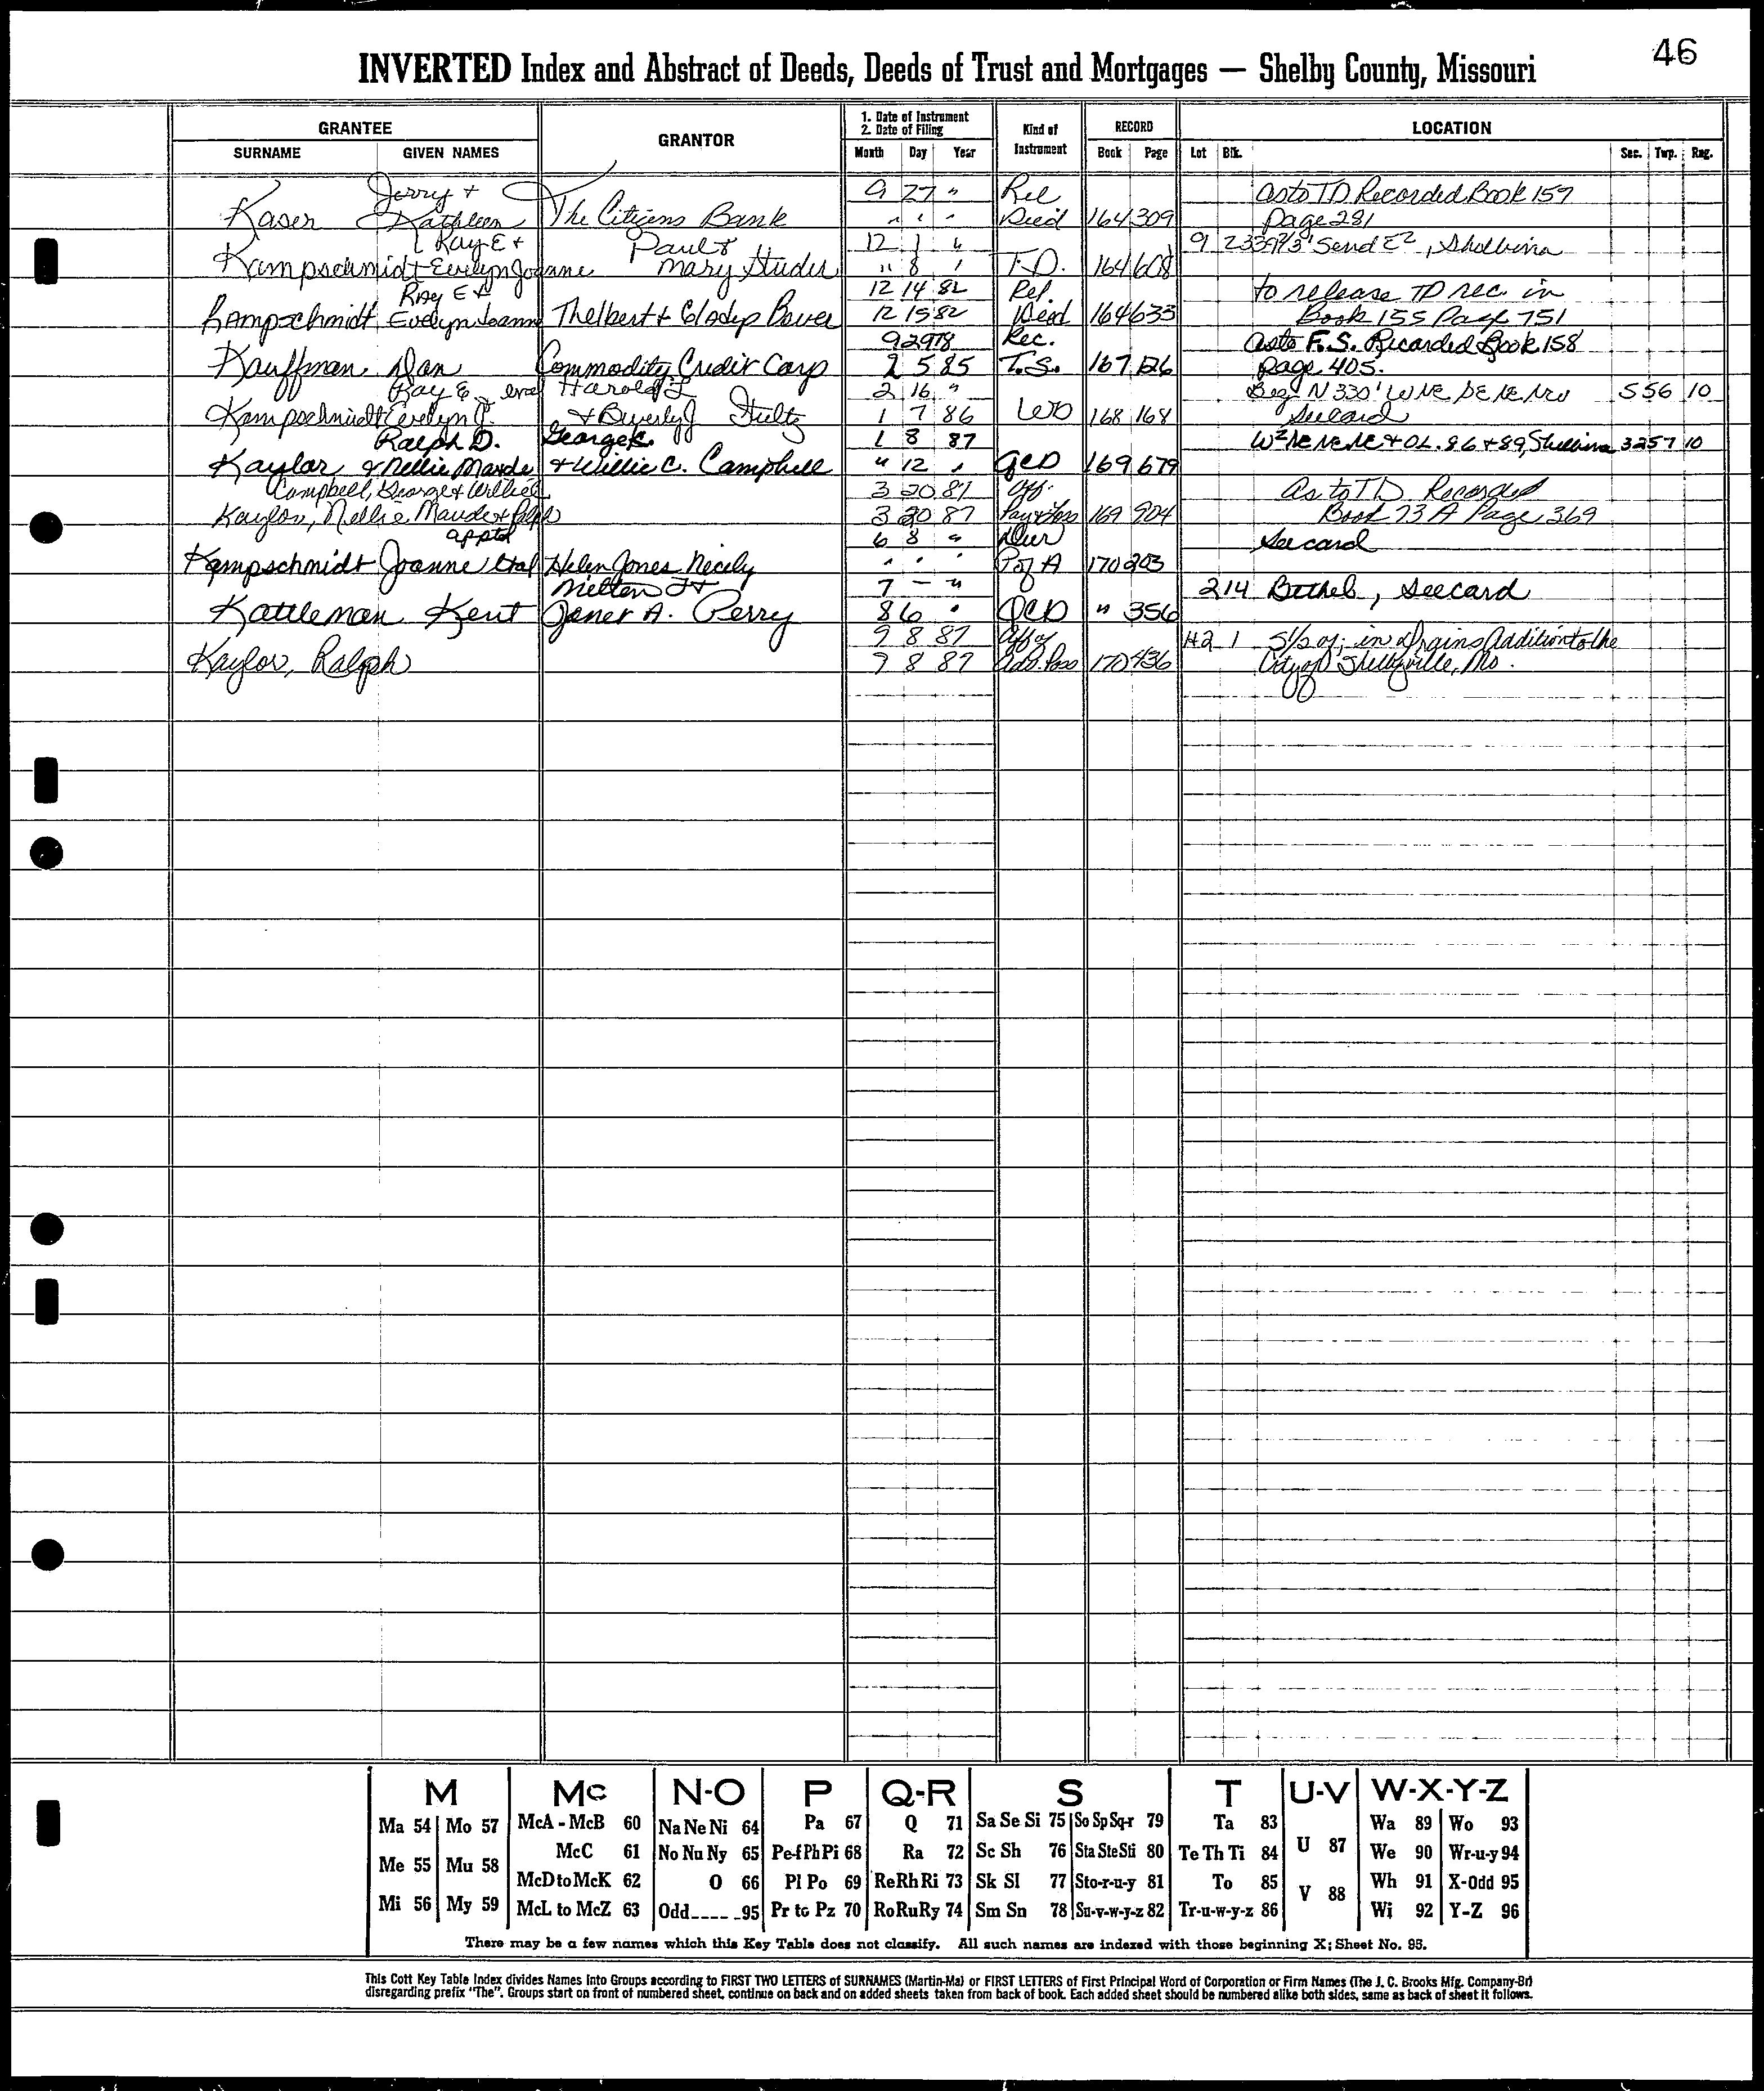 46
INVERTED Index and Abstract of Deeds, Deeds of Trust and Mortgages — Shelby County, Missouri
GRANTEE GRANTOR 1. Date of Instrument 2. Date of Filing Kind of Instrument RECORD LOCATION
SURNAME GIVEN NAMES Month Day Year Book Page Lot Blk. Sec. Twp. Rng.
Jerry + 9 27 " Rel as to TD Recorded Book 157
Kaser Kathleen The Citizens Bank " " " Deed 164 309 Page 281
Ray E + Paul & 12 1 " 9 2 Send E2, Shelbina
Kampschmidt Evelyn Joanne Mary Studer " 8 " T.D. 164 608
Ray E + 12 14 82 Rel. to release TD rec. in
Kampschmidt Evelyn Joanne Thelbert + Gladys Bauer 12 15 82 Deed 164 633 Book 155 Page 751
9 29 78 Rec. as to F.S. Recorded Book 158
Kauffman Dan Commodity Credit Corp 2 5 85 T.S. 167 126 Page 405.
Ray E Harold L 2 16 " Beg N 330' W NE SE NE NW 5 56 10
Kampschmidt Evelyn J. & Beverly J Stultz 1 7 86 WD 168 168 See card
Ralph D. George K. 1 8 87 W2 NE NE NE + OL. 86 + 89, Shelbina 32 57 10
Kaylor & Nellie Maude & Willie C. Campbell " 12 " QCD 169 679
Campbell, George + Willie C 3 20 87 Aff. As to TD Recorded
Kaylor, Nellie Maude + Ralph 3 20 87 Pay + Loss 169 904 Book 73 A Page 369
apptd 6 8 " Dur See card
Kampschmidt Joanne etal Helen Jones Nicely " " " P of A 170 203
Milton F + 7 — " 2 14 Bethel, See card
Kattleman Kent Janet A. Perry 8 6 " QCD " 356
9 8 87 Aff of 1+2 1 S 1/2 of; in Drains Addition to the
Kaylor, Ralph 9 8 87 Adv. Poss 170 436 City of Shelbyville, Mo.
M Mc N-O P Q-R S T U-V W-X-Y-Z
Ma 54 Mo 57 McA - McB 60 Na Ne Ni 64 Pa 67 Q 71 Sa Se Si 75 So Sp Sq-r 79 Ta 83 U 87 Wa 89 Wo 93
Me 55 Mu 58 McC 61 No Nu Ny 65 Pe-f Ph Pi 68 Ra 72 Sc Sh 76 Sta Ste Sti 80 Te Th Ti 84 We 90 Wr-u-y 94
McD to McK 62 O 66 Pl Po 69 Re Rh Ri 73 Sk Sl 77 Sto-r-u-y 81 To 85 V 88 Wh 91 X-Odd 95
Mi 56 My 59 McL to McZ 63 Odd____95 Pr to Pz 70 Ro Ru Ry 74 Sm Sn 78 Su-v-w-y-z 82 Tr-u-w-y-z 86 Wi 92 Y-Z 96
There may be a few names which this Key Table does not classify. All such names are indexed with those beginning X; Sheet No. 95.
This Cott Key Table Index divides Names into Groups according to FIRST TWO LETTERS of SURNAMES (Martin-Ma) or FIRST LETTERS of First Principal Word of Corporation or Firm Names (The J. C. Brooks Mfg. Company-Br)
disregarding prefix "The". Groups start on front of numbered sheet, continue on back and on added sheets taken from back of book. Each added sheet should be numbered alike both sides, same as back of sheet it follows.